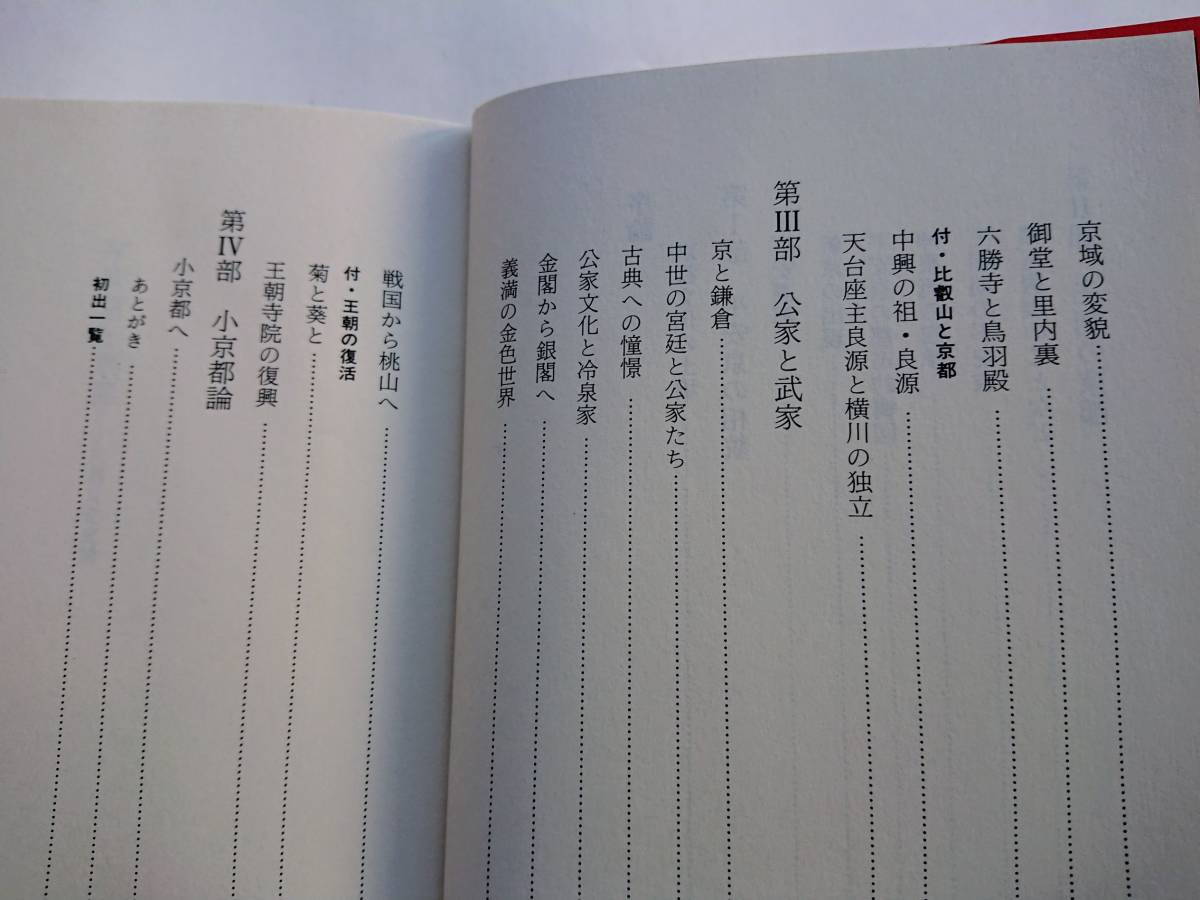 京域の変貌
御堂と里内裏
六勝寺と鳥羽殿
付・比叡山と京都
中興の祖・良源
天台座主良源と横川の独立
第Ⅲ部 公家と武家
京と鎌倉
中世の宮廷と公家たち
古典への憧憬
公家文化と冷泉家
金閣から銀閣へ
義満の金色世界
戦国から桃山へ
付・王朝の復活
菊と葵と
王朝寺院の復興
第Ⅳ部 小京都論
小京都へ
あとがき
初出一覧